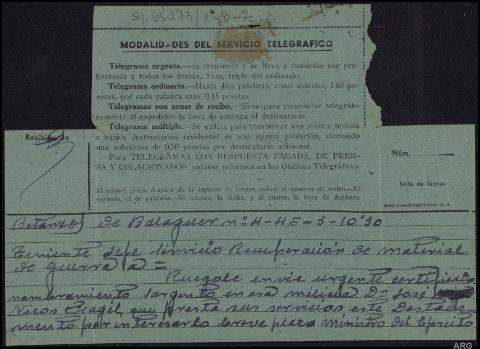 S/. 65273/1º 8-2
MODALIDADES DEL SERVICIO TELEGRAFICO
Telegrama urgente.—Se transmite y se lleva a domicilio con pre-
ferencia a todos los demás. Tasa, triple del ordinario.
Telegrama ordinario.—Hasta diez palabras, como mínimo, 1,65
pesetas, por cada palabra más, 0,15 pesetas.
Telegramas con acuse de recibo.—Sirve para comunicar telegráfi-
camente al expedidor la hora de entrega al destinatario.
Telegrama múltiple.—Se utiliza para comunicar una misma noticia
a varios destinatarios residentes en una misma población, abonando
una sobretasa de 0,50 pesetas por destinatario adicional.
Para TELEGRAMAS CON RESPUESTA PAGADA, DE PREN-
SA Y COLACIONADOS, pídanse informes en las Oficinas Telegráficas.
El primer grupo después de la oficina de origen indica el número de orden.—El
segundo, el de palabras.—El tercero, la fecha, y el cuarto, la hora de depósito.
Recibido de
Núm.
Sello de fechas
Betanzos de Balaguer nº 4-45-5-10'30
Teniente Jefe servicio Recuperación de material
de guerra a =
Ruegole envie urgente certificado
nombramiento sargento en esa milicia Dn José
que presta sus servicios este Destaca
mento por interesarlo breve plazo Ministro del Ejercito
ARG